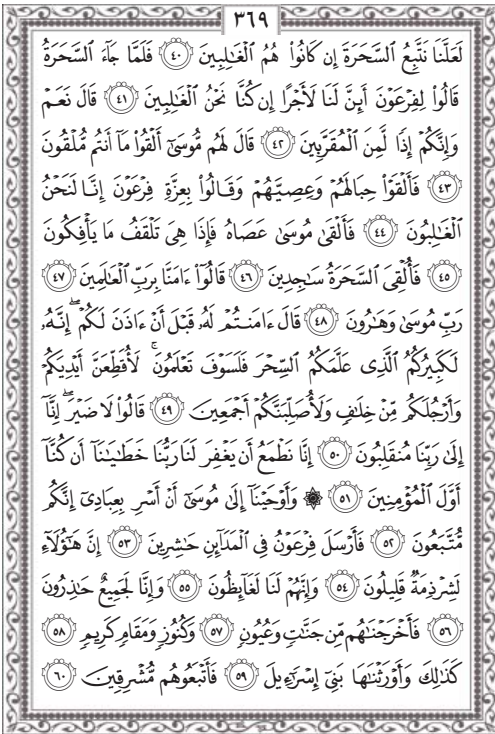 ٣٦٩
لَعَلَّنَا نَتَّبِعُ السَّحَرَةَ إِن كَانُوا۟ هُمُ الْغَـٰلِبِينَ ﴿٤٠﴾ فَلَمَّا جَآءَ السَّحَرَةُ
قَالُوا۟ لِفِرْعَوْنَ أَئِنَّ لَنَا لَأَجْرًا إِن كُنَّا نَحْنُ الْغَـٰلِبِينَ ﴿٤١﴾ قَالَ نَعَمْ
وَإِنَّكُمْ إِذًا لَّمِنَ الْمُقَرَّبِينَ ﴿٤٢﴾ قَالَ لَهُم مُّوسَىٰٓ أَلْقُوا۟ مَآ أَنتُم مُّلْقُونَ
﴿٤٣﴾ فَأَلْقَوْا۟ حِبَالَهُمْ وَعِصِيَّهُمْ وَقَالُوا۟ بِعِزَّةِ فِرْعَوْنَ إِنَّا لَنَحْنُ
الْغَـٰلِبُونَ ﴿٤٤﴾ فَأَلْقَىٰ مُوسَىٰ عَصَاهُ فَإِذَا هِىَ تَلْقَفُ مَا يَأْفِكُونَ
﴿٤٥﴾ فَأُلْقِىَ السَّحَرَةُ سَـٰجِدِينَ ﴿٤٦﴾ قَالُوٓا۟ ءَامَنَّا بِرَبِّ الْعَـٰلَمِينَ ﴿٤٧﴾
رَبِّ مُوسَىٰ وَهَـٰرُونَ ﴿٤٨﴾ قَالَ ءَامَنتُمْ لَهُۥ قَبْلَ أَنْ ءَاذَنَ لَكُمْ ۖ إِنَّهُۥ
لَكَبِيرُكُمُ الَّذِى عَلَّمَكُمُ السِّحْرَ فَلَسَوْفَ تَعْلَمُونَ ۚ لَأُقَطِّعَنَّ أَيْدِيَكُمْ
وَأَرْجُلَكُم مِّنْ خِلَـٰفٍ وَلَأُصَلِّبَنَّكُمْ أَجْمَعِينَ ﴿٤٩﴾ قَالُوا۟ لَا ضَيْرَ ۖ إِنَّآ
إِلَىٰ رَبِّنَا مُنقَلِبُونَ ﴿٥٠﴾ إِنَّا نَطْمَعُ أَن يَغْفِرَ لَنَا رَبُّنَا خَطَـٰيَـٰنَآ أَن كُنَّآ
أَوَّلَ الْمُؤْمِنِينَ ﴿٥١﴾ ۞ وَأَوْحَيْنَآ إِلَىٰ مُوسَىٰٓ أَنْ أَسْرِ بِعِبَادِىٓ إِنَّكُم
مُّتَّبَعُونَ ﴿٥٢﴾ فَأَرْسَلَ فِرْعَوْنُ فِى الْمَدَآئِنِ حَـٰشِرِينَ ﴿٥٣﴾ إِنَّ هَـٰٓؤُلَآءِ
لَشِرْذِمَةٌ قَلِيلُونَ ﴿٥٤﴾ وَإِنَّهُمْ لَنَا لَغَآئِظُونَ ﴿٥٥﴾ وَإِنَّا لَجَمِيعٌ حَـٰذِرُونَ
﴿٥٦﴾ فَأَخْرَجْنَـٰهُم مِّن جَنَّـٰتٍ وَعُيُونٍ ﴿٥٧﴾ وَكُنُوزٍ وَمَقَامٍ كَرِيمٍ ﴿٥٨﴾
كَذَٰلِكَ وَأَوْرَثْنَـٰهَا بَنِىٓ إِسْرَٰٓءِيلَ ﴿٥٩﴾ فَأَتْبَعُوهُم مُّشْرِقِينَ ﴿٦٠﴾